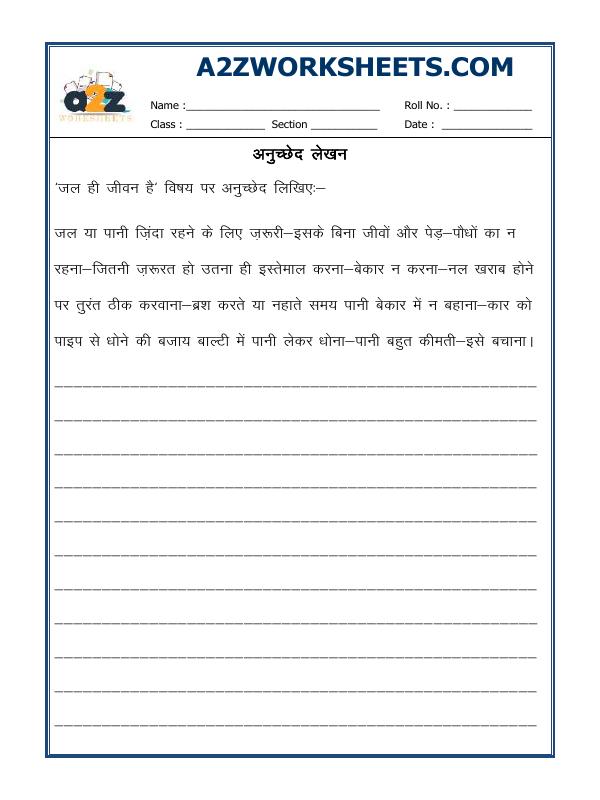 A2ZWORKSHEETS.COM
a2z
WORKSHEETS
Name :______________________________ Roll No. : ____________
Class : ____________ Section __________ Date : ______________
अनुच्छेद लेखन
'जल ही जीवन है' विषय पर अनुच्छेद लिखिए:–
जल या पानी ज़िंदा रहने के लिए ज़रूरी–इसके बिना जीवों और पेड़–पौधों का न
रहना–जितनी ज़रूरत हो उतना ही इस्तेमाल करना–बेकार न करना–नल खराब होने
पर तुरंत ठीक करवाना–ब्रश करते या नहाते समय पानी बेकार में न बहाना–कार को
पाइप से धोने की बजाय बाल्टी में पानी लेकर धोना–पानी बहुत कीमती–इसे बचाना।